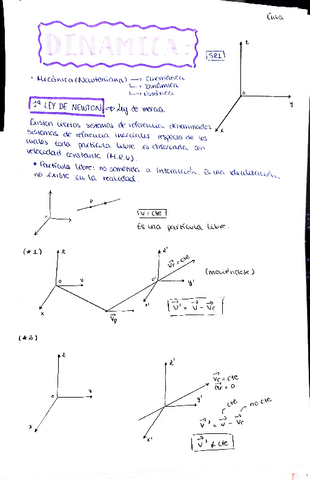 DINAMICA:
SRI
· Mecánica (Newtoniana) → Cinemática
→ Dinámica
→ Estática
1ª LEY DE NEWTON → Ley de inercia.
Existen ciertos sistemas de referencia denominados
sistemas de referencia inerciales respecto de los
cuales toda partícula libre es observada con
velocidad constante (M.R.U).
• Partícula libre: no sometida a interacción. Es una idealización,
no existe en la realidad.
z
y
x
v = cte
Es una partícula libre.
(#1)
z
y
x
o
z'
y'
x'
o'
Vc = cte
(moviéndose)
V' = V - Vc
(#2)
z
y
x
o
z'
y'
x'
Vc = cte
cte
no cte
V' = V - Vc
V' ≠ cte